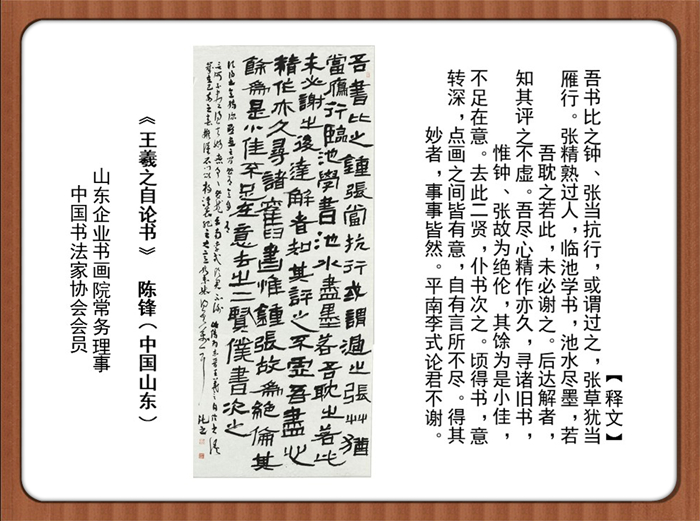 【释文】
吾书比之钟、张当抗行，或谓过之，张草犹当
雁行。张精熟过人，临池学书，池水尽墨，若
吾耽之若此，未必谢之。后达解者，
知其评之不虚。吾尽心精作亦久，寻诸旧书，
惟钟、张故为绝伦，其馀为是小佳，
不足在意。去此二贤，仆书次之。顷得书，意
转深，点画之间皆有意，自有言所不尽。得其
妙者，事事皆然。平南李式论君不谢。
吾書比之鍾張當抗行或謂過之張艸猶
當鴈行臨池學書池水盡墨若吾耽之若此
未必謝之後達解者知其評之不虛吾盡心
精作亦久尋諸舊書惟鍾張故爲絕倫其
餘爲是小佳不足在意去此二賢僕書次之
《王羲之自论书》 陈锋（中国山东）
山东企业书画院常务理事
中国书法家协会会员